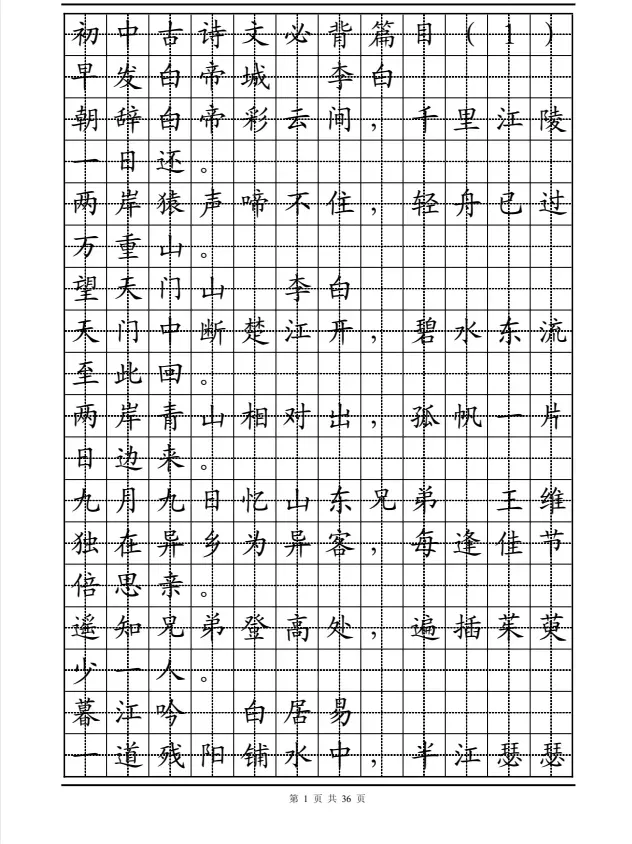 初中古诗文必背篇目（1）
早发白帝城 李白
朝辞白帝彩云间，千里江陵
一日还。
两岸猿声啼不住，轻舟已过
万重山。
望天门山 李白
天门中断楚江开，碧水东流
至此回。
两岸青山相对出，孤帆一片
日边来。
九月九日忆山东兄弟 王维
独在异乡为异客，每逢佳节
倍思亲。
遥知兄弟登高处，遍插茱萸
少一人。
暮江吟 白居易
一道残阳铺水中，半江瑟瑟
第 1 页 共 36 页